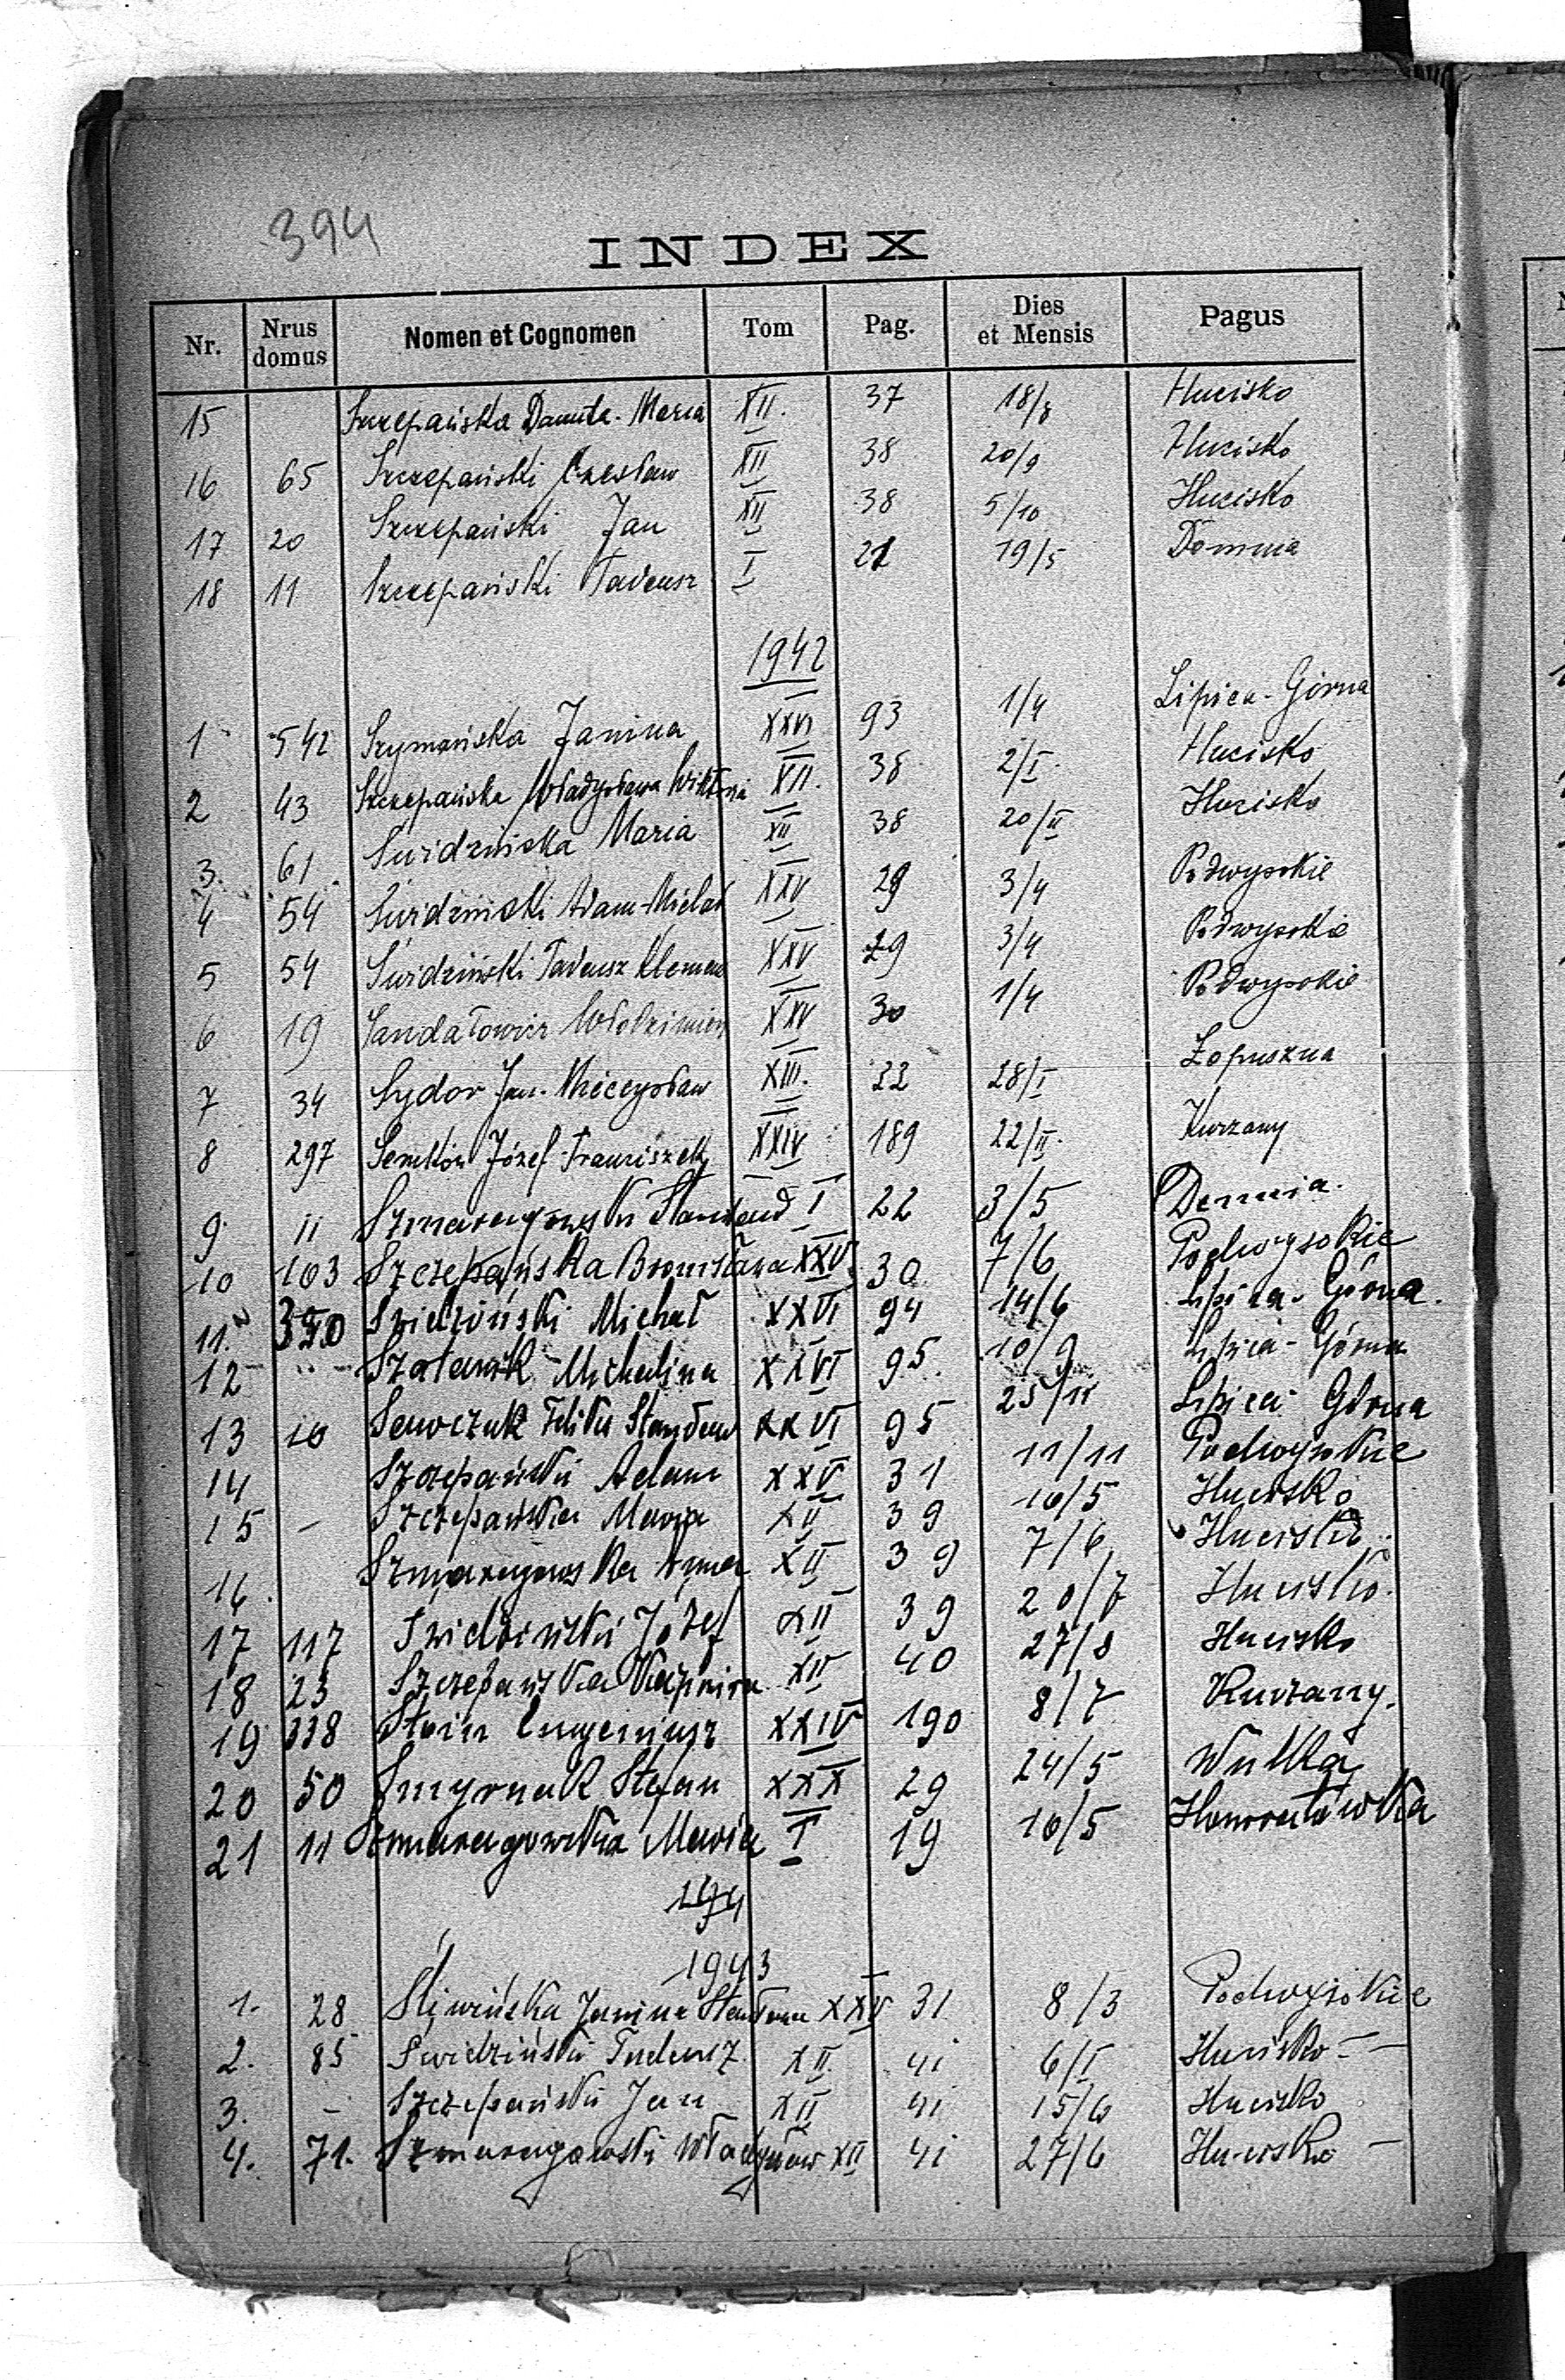 394
INDEX
Nr. Nrus domus Nomen et Cognomen Tom Pag. Dies et Mensis Pagus
15 Szczepańska Danuta-Maria XII. 37 18/8 Hucisko
16 65 Szczepański Czesław XII 38 20/9 Hucisko
17 20 Szczepański Jan XII 38 5/10 Hucisko
18 11 Szczepański Tadeusz I 21 19/5 Demnia
1942
1 542 Szymańska Janina XXVI 93 1/4 Lipica-Górna
2 43 Szczepańska Władysława Wiktoria XII. 38 2/I Hucisko
3. 61 Świdzińska Maria XII 38 20/II Hucisko
4 54 Świdziński Adam-Michał XXV 29 3/4 Podwysokie
5 54 Świdziński Tadeusz Klemens XXV 29 3/4 Podwysokie
6 19 Sandałowicz Włodzimierz XXV 30 1/4 Podwysokie
7 34 Sydor Jan-Mieczysław XIII. 22 28/I Łopuszna
8 297 Semków Józef-Franciszek XXIV 189 22/II. Kurzany
9 11 Szmaragowski Stanisław I 22 3/5 Demnia.
10 103 Szczepańska Bronisława XXV 30 7/6 Podwysokie
11. 350 Świdziński Michał XXVI 94 14/6 Lipica-Górna.
12 Michalina XXVI 95 10/9 Lipica-Górna
13 10 Sawczuk Feliks Stanisław XXVI 95 25/11 Lipica Górna
14 Szczepański Adam XXV 31 11/11 Podwysokie
15 – Szczepańska Maria XII 39 16/5 Hucisko
16. Szmaragowska Anna XII 39 7/6 Hucisko
17 117 Świdziński Józef XII 39 20/7 Hucisko.
18 23 Szczepańska Kazimira XII 40 27/8 Hucisko
19 338 Stein Eugeniusz XXIV 190 8/7 Kurzany.
20 50 Smyrnak Stefan XXX 29 24/5 Wulka
21 11 Szmaragowska Maria I 19 16/5 Honoratówka
194
1943
1. 28 Śliwińska Janina Stanisława XXV 31 8/3 Podwysokie
2. 85 Świdziński Tadeusz XII. 41 6/I Hucisko –
3. – Szczepański Jan XII 41 15/6 Hucisko
4. 71. Szmaragowski Władysław XII 41 27/6 Hucisko –